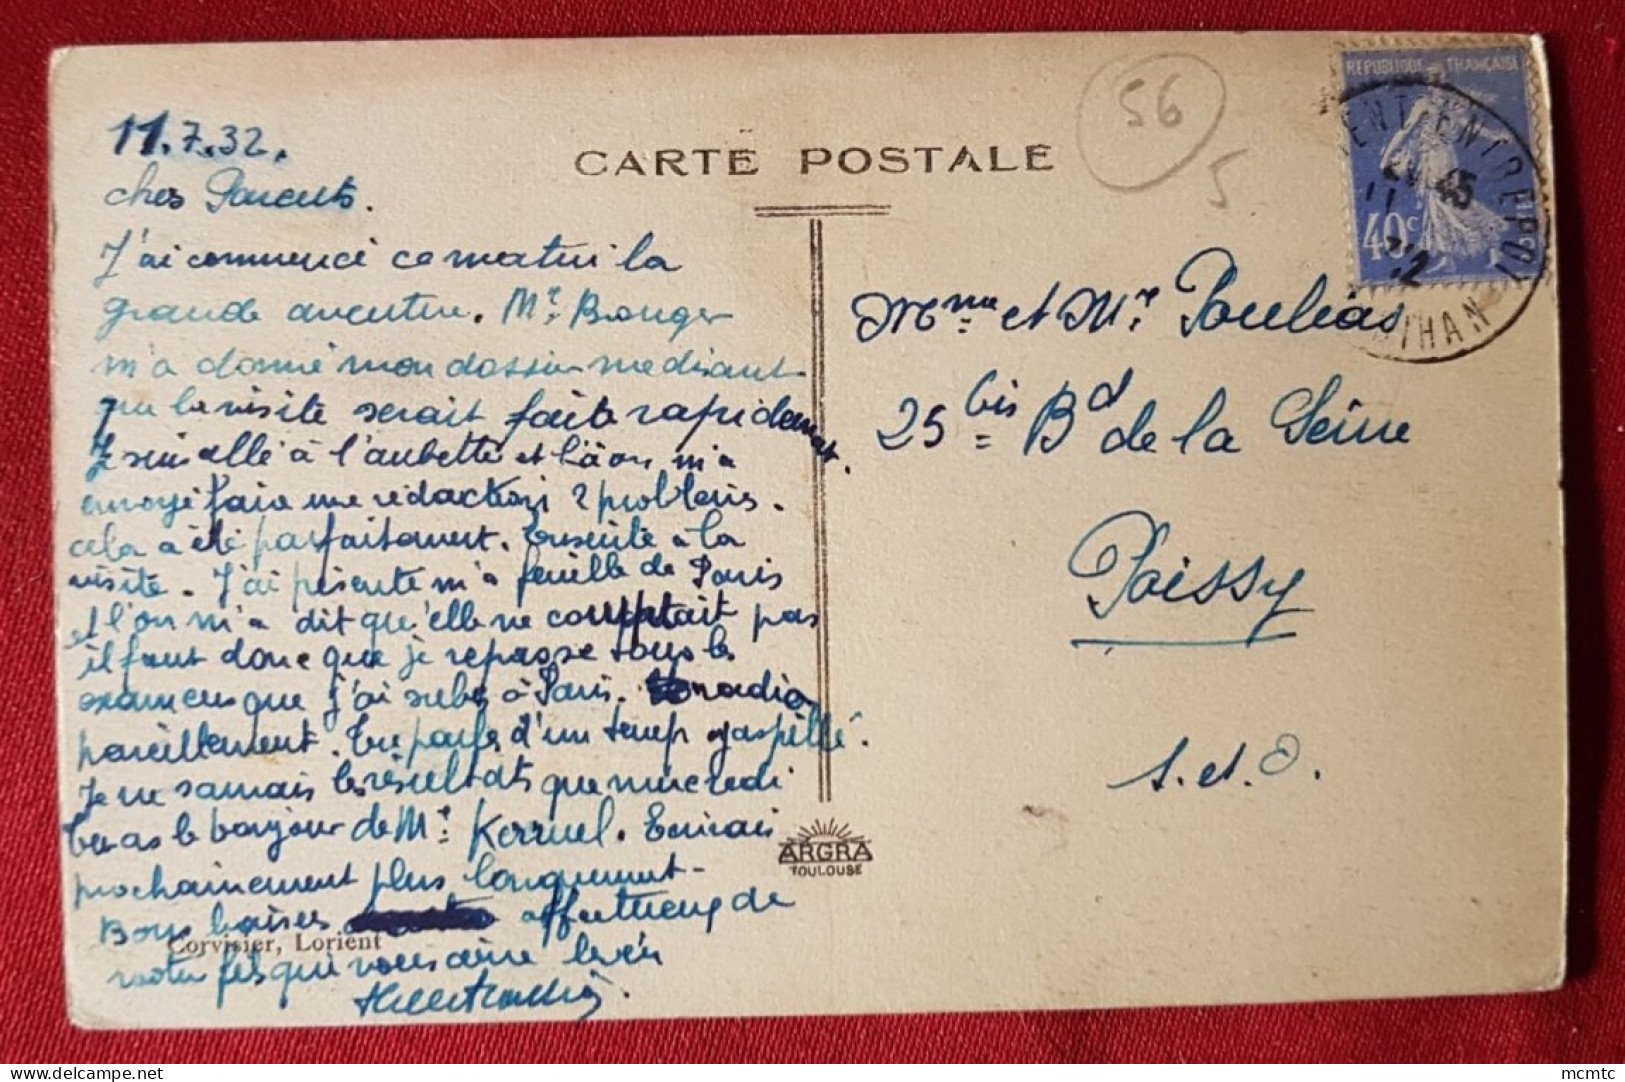 11.7.32.
chers Parents.
J'ai commencé ce matin la
grande aventure. Mr. Bouger
m'a donné mon dossier me disant
que la visite serait faite rapidement.
Je suis allé à l'aubette et là on m'a
envoyé faire une rédaction 2 problemes.
cela a été parfaitement. Ensuite à la
visite. J'ai présenté m'a feuille de Paris
et l'on m'a dit qu'elle ne comptait pas
il faut donc que je repasse tous les
examens que j'ai subis à Paris. radio
pareillement. Tu parles d'un temps gaspillé.
Je ne saurais les résultats que mercredi
Tu as le bonjour de Mr. Kerruel. Ecrirai
prochainement plus longuement-
Bons baisers affectueux de
votre fils qui vous aime bien
Corvisier, Lorient
CARTE POSTALE
56
5
REPUBLIQUE FRANÇAISE
40c
LORIENT ENTREPOT
11
MORBIHAN
Mme et Mr. Poulias
25 bis Bd de la Seine
Poissy
S. et O.
ARGRA
TOULOUSE
mcmtc